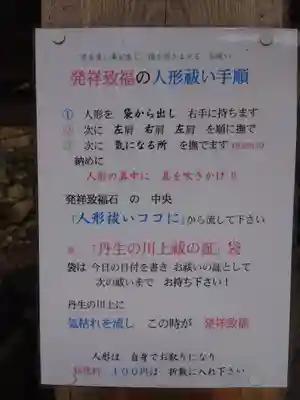 発祥致福の人形祓い手順
① 人形を 袋から出し 右手に持ちます
② 次に 左肩 右肩 左肩 を順に撫で
③ 次に 気になる所 を撫でます
納めに
人形の真中に 息を吹きかけ!!
発祥致福石 の 中央
「人形祓いココに」から流して下さい
※ 「丹生の川上祓の証」袋
袋は 今日の日付を書き お祓いの証として
次の祓いまで お持ち下さい!
丹生の川上に
気枯れを流し この時が 発祥致福
人形は 自身でお取りになり
100円は 折敷に入れ下さい